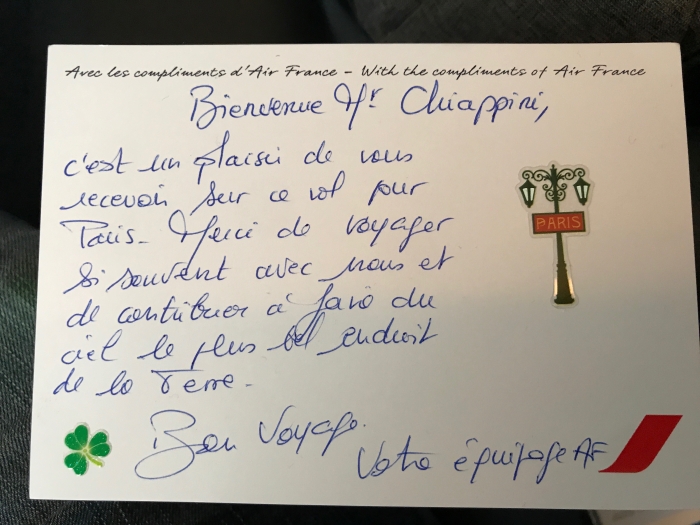 Avec les compliments d'Air France - With the compliments of Air France
Bienvenue Mr Chiappini,
c'est un plaisir de vous
recevoir sur ce vol pour
PARIS
Paris. Merci de voyager
si souvent avec nous et
de contribuer à faire du
ciel le plus bel endroit
de la Terre.
Bon Voyage.
Votre équipage AF